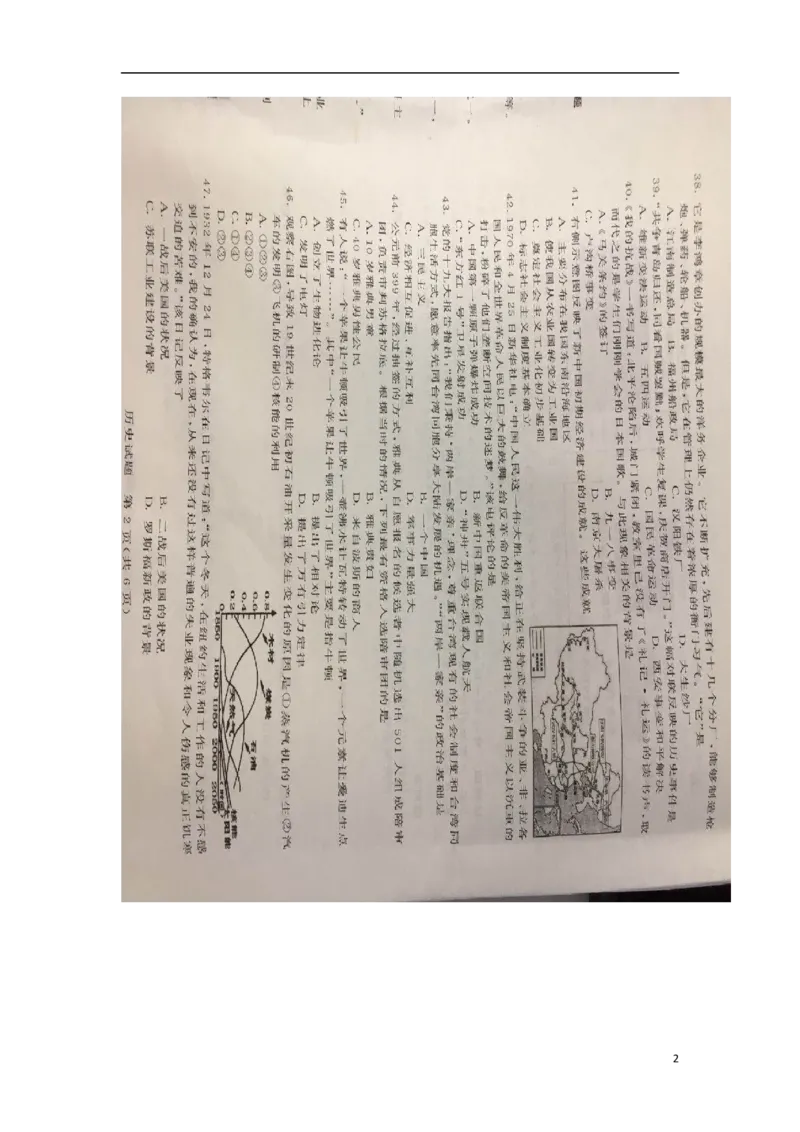 38. 它是李鸿章创办的规模最大的洋务企业。它不断扩充,先后建有十几个分厂,能够制造枪
炮、弹药、轮船、机器。但是,它在管理上仍然存在着浓厚的衙门习气。“它”是
A. 江南制造总局 B. 福州船政局 C. 汉阳铁厂 D. 大生纱厂
39. “共争青岛归还,同看国贼罢黜,欢呼学生复课,庆贺商店开门。”这幅对联反映的历史事件是
A. 维新变法运动 B. 五四运动 C. 国民革命运动 D. 西安事变和平解决
40. 《我的抗战》一书写道,北平沦陷后,城门紧闭,教室里已没有了《礼记·礼运》的读书声,取
而代之的是学生们刚刚学会的日本国歌。与此现象相关的背景是
A. 《马关条约》的签订 B. 九一八事变
C. 卢沟桥事变 D. 南京大屠杀
41. 右侧示意图反映了新中国初期经济建设的成就。这些成就
A. 主要分布在我国东南沿海地区
B. 使我国从农业国转变为工业国
C. 奠定社会主义工业化初步基础
D. 标志社会主义制度基本确立
42. 1970年4月25日新华社电:“中国人民这一伟大胜利,给正在坚持武装斗争的亚、非、拉各
国人民和全世界革命人民以巨大的鼓舞,给反革命的美帝国主义和社会帝国主义以沉重的
打击,粉碎了他们垄断空间技术的迷梦。”该电评论的是
A. 中国第一颗原子弹爆炸成功 B. 新中国重返联合国
C. “东方红1号”卫星发射成功 D. “神舟”五号实现载人航天
43. 党的十九大报告指出:“我们秉持‘两岸一家亲’理念,尊重台湾现有的社会制度和台湾同
胞生活方式,愿意率先同台湾同胞分享大陆发展的机遇。”“两岸一家亲”的政治基础是
A. 三民主义 B. 一个中国
C. 经济相互促进、互补互利 D. 军事力量强大
44. 公元前399年,经过抽签的方式,雅典从自愿报名的候选者中随机选出501人组成陪审
团,负责审判苏格拉底。根据当时的情况,下列最有资格入选陪审团的是
A. 10岁雅典男童 B. 雅典贵妇
C. 40岁雅典男性公民 D. 来自波斯的商人
45. 有人说:“一个苹果让牛顿吸引了世界,一壶沸水让瓦特转动了世界,一个元素让爱迪生点
燃了世界……”。其中“一个苹果让牛顿吸引了世界”主要是指牛顿
A. 创立了生物进化论 B. 提出了相对论
C. 发明了电灯 D. 提出了万有引力定律
46. 观察右图,导致19世纪末20世纪初石油开采量发生变化的原因是①蒸汽机的产生②汽
车的发明③飞机的研制④核能的利用
A. ①②③
B. ②③④
C. ①④
D. ②③
0.8
0.6
0.4
0.2
0
木材
煤炭
石油
天然气
核能
太阳能
1850 1900 1950 2000 2050
47. 1932年12月24日,特格韦尔在日记中写道:“这个冬天,在纽约生活和工作的人没有不感
到不安的,我的确认为,在现在,从来还没有过这样普遍的失业现象和令人伤感的真正饥寒
交迫的苦难。”该日记反映了
A. 一战后美国的状况 B. 二战后美国的状况
C. 苏联工业建设的背景 D. 罗斯福新政的背景
历史试题 第2页(共6页)
2